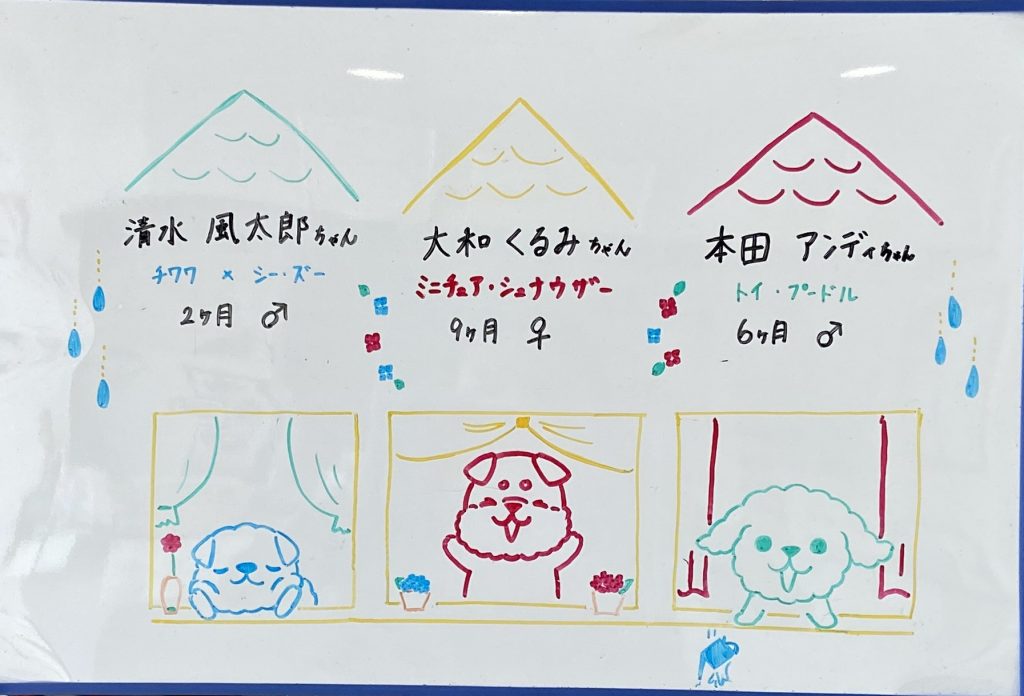 清水 風太郎ちゃん
チワワ × シー・ズー
2ヶ月 ♂
大和 くるみちゃん
ミニチュア・シュナウザー
9ヶ月 ♀
本田 アンディちゃん
トイ・プードル
6ヶ月 ♂